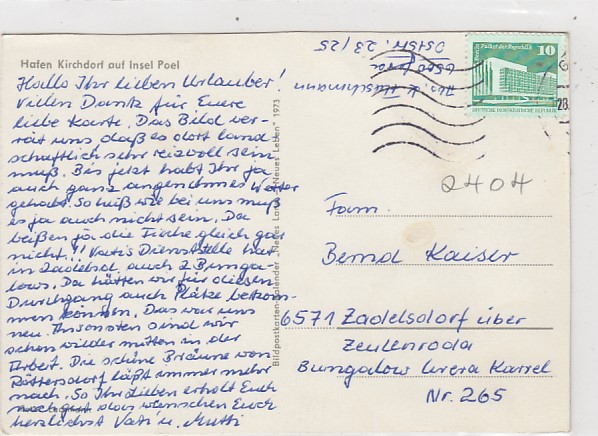 Hafen Kirchdorf auf Insel Poel
Hallo Ihr lieben Urlauber!
Vielen Dank für Eure
liebe Karte. Das Bild ver-
rät uns, daß es dort land
schaftlich sehr reizvoll sein
muß. Bis jetzt habt Ihr ja
auch ganz angenehmes Wetter
gehabt. So heiß wie bei uns muß
es ja auch nicht sein. Da
beißen ja die Fische gleich gar
nicht!! Vatis Dienststelle hat
in Zadelsd. auch 2 Bunga-
lows. Da hätten wir für diesen
Durchgang auch Plätze bekom-
men können. Das war uns
neu. Ansonsten sind wir
schon wieder mitten in der
Arbeit. Die schöne Bräune von
läßt immer mehr
nach. So Ihr Lieben erholt Euch
noch gut das wünschen Euch
herzlichst Vati u. Mutti
Bildpostkarten-Kalender „Neues Leben“ 1973
Ostst. 23/25
6550
Abs.
Palast der Republik
10
DEUTSCHE DEMOKRATISCHE REPUBLIK
28.
2404
Fam.
Bernd Kaiser
6571 Zadelsdorf über
Zeulenroda
Bungalow
Nr. 265